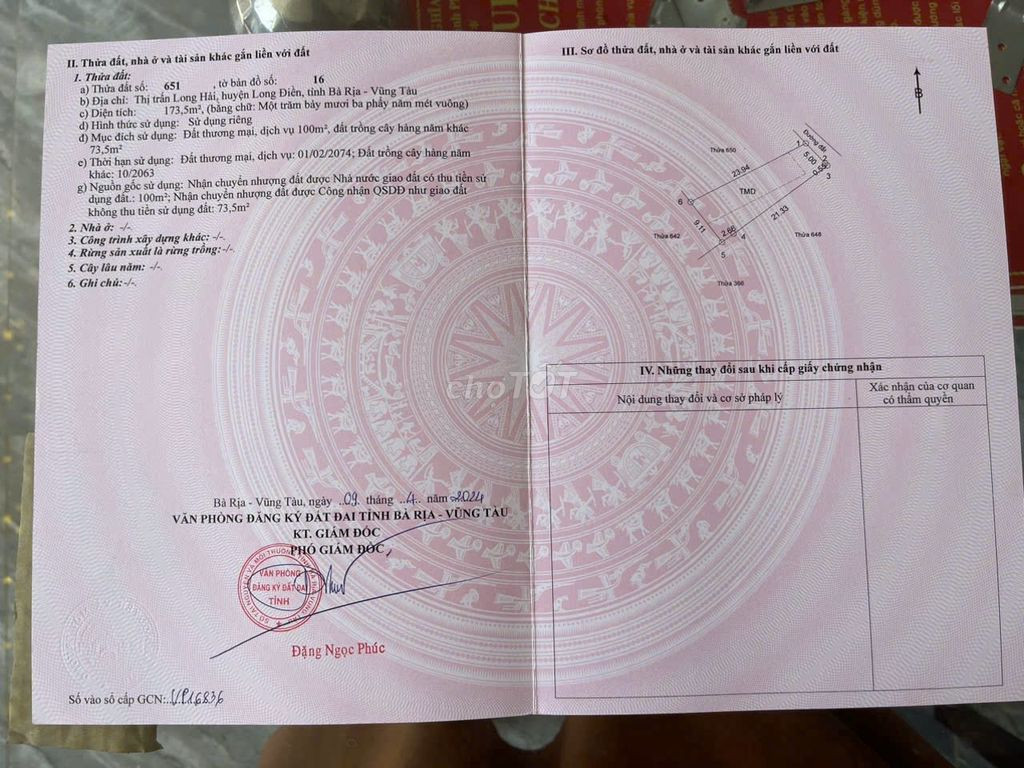 II. Thửa đất, nhà ở và tài sản khác gắn liền với đất
1. Thửa đất:
a) Thửa đất số: 651 , tờ bản đồ số: 16
b) Địa chỉ: Thị trấn Long Hải, huyện Long Điền, tỉnh Bà Rịa - Vũng Tàu
c) Diện tích: 173,5m², (bằng chữ: Một trăm bảy mươi ba phẩy năm mét vuông)
d) Hình thức sử dụng: Sử dụng riêng
đ) Mục đích sử dụng: Đất thương mại, dịch vụ 100m², đất trồng cây hàng năm khác
73,5m²
e) Thời hạn sử dụng: Đất thương mại, dịch vụ: 01/02/2074; Đất trồng cây hàng năm
khác: 10/2063
g) Nguồn gốc sử dụng: Nhận chuyển nhượng đất được Nhà nước giao đất có thu tiền sử
dụng đất.: 100m²; Nhận chuyển nhượng đất được Công nhận QSDĐ như giao đất
không thu tiền sử dụng đất: 73,5m²
2. Nhà ở: -/-
3. Công trình xây dựng khác: -/-
4. Rừng sản xuất là rừng trồng:-/-
5. Cây lâu năm: -/-
6. Ghi chú:-/-
Bà Rịa - Vũng Tàu, ngày ..09. tháng ..4.. năm 2024
VĂN PHÒNG ĐĂNG KÝ ĐẤT ĐAI TỈNH BÀ RỊA - VŨNG TÀU
KT. GIÁM ĐỐC
PHÓ GIÁM ĐỐC
SỞ TÀI NGUYÊN VÀ MÔI TRƯỜNG TỈNH BÀ RỊA VŨNG TÀU
VĂN PHÒNG
ĐĂNG KÝ ĐẤT ĐAI
TỈNH
Đặng Ngọc Phúc
Số vào sổ cấp GCN:..VP16836
III. Sơ đồ thửa đất, nhà ở và tài sản khác gắn liền với đất
B
Đường đất
Thửa 650
1
2
5.00
0.55
3
23.94
TMD
6
21.33
9.11
2.66
4
5
Thửa 642
Thửa 648
Thửa 366
IV. Những thay đổi sau khi cấp giấy chứng nhận
Nội dung thay đổi và cơ sở pháp lý
Xác nhận của cơ quan
có thẩm quyền
choTỐT